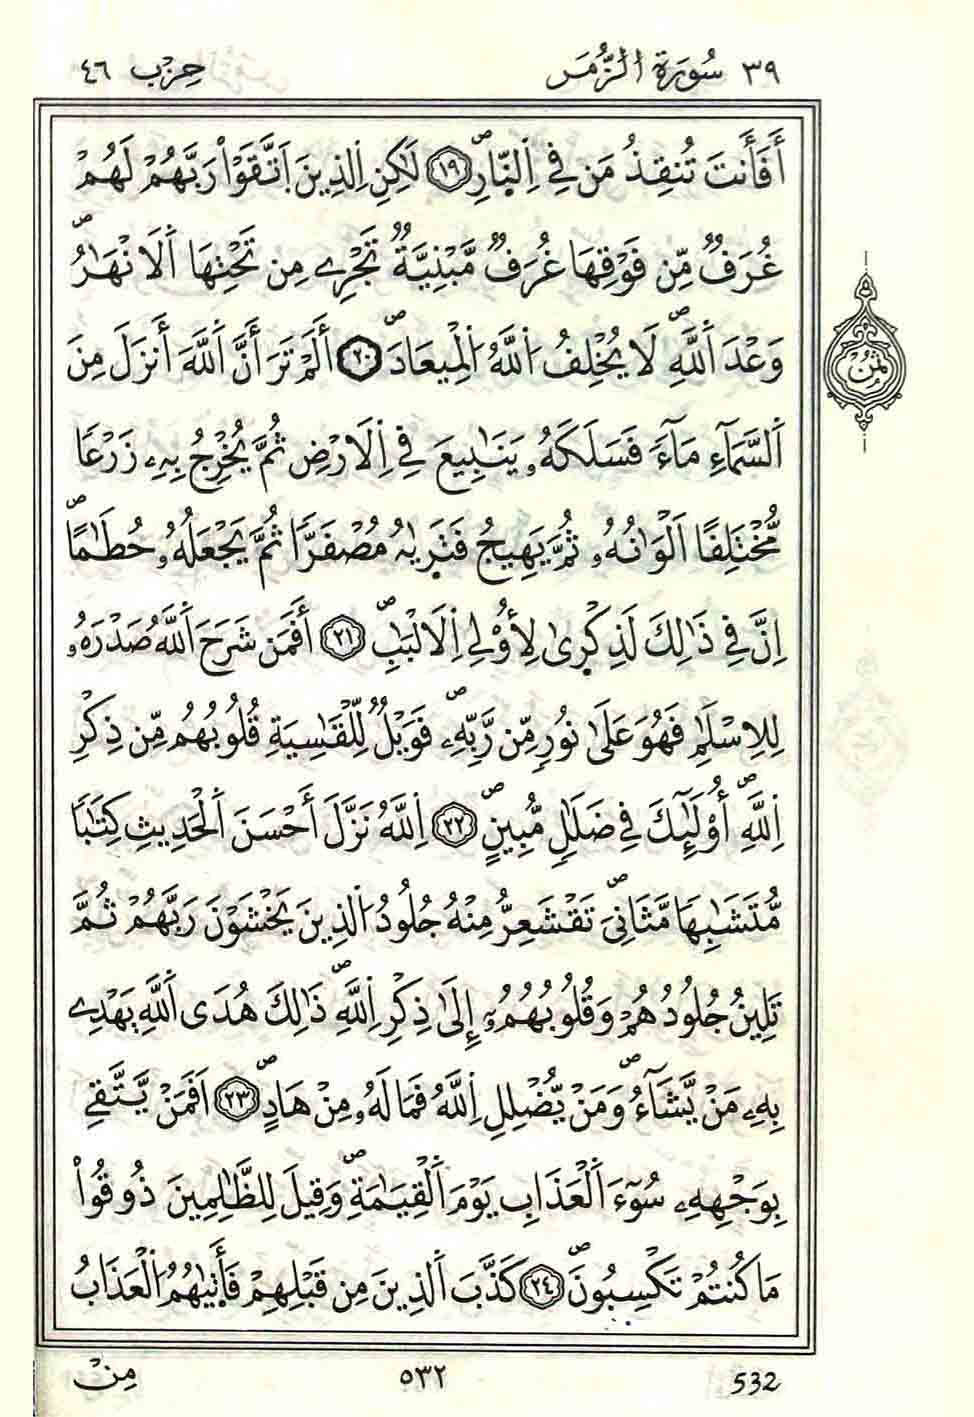 ٣٩ سُورَةُ الزُّمَر حِزْب ٤٦
أَفَأَنتَ تُنقِذُ مَن فِي اِ۬لنّ۪ارِۖ ١٩ لَٰكِنِ اِ۬لذِينَ اَ۪تَّقَوْاْ رَبَّهُمْ لَهُمْ
غُرَفٞ مِّن فَوْقِهَا غُرَفٞ مَّبْنِيَّةٞ تَجْرِے مِن تَحْتِهَا اَ۬لَانْهَٰرُۖ
وَعْدَ اَ۬للَّهِۖ لَا يُخْلِفُ اُ۬للَّهُ اُ۬لْمِيعَادَۖ ٢٠ أَلَمْ تَرَ أَنَّ اَ۬للَّهَ أَنزَلَ مِنَ
اَ۬لسَّمَآءِ مَآءٗ فَسَلَكَهُۥ يَنَٰبِيعَ فِي اِ۬لَارْضِ ثُمَّ يُخْرِجُ بِهِۦ زَرْعاٗ
مُّخْتَلِفاً اَلْوَٰنُهُۥ ثُمَّ يَهِيجُ فَتَر۪يٰهُ مُصْفَرّاٗ ثُمَّ يَجْعَلُهُۥ حُطَٰماًۖ
اِنَّ فِي ذَٰلِكَ لَذِكْر۪يٰ لِأُوْلِي اِ۬لَالْبَٰبِۖ ٢١ أَفَمَن شَرَحَ اَ۬للَّهُ صَدْرَهُۥ
لِلِاسْلَٰمِ فَهُوَ عَلَىٰ نُورٖ مِّن رَّبِّهِۦۖ فَوَيْلٞ لِّلْقَٰسِيَةِ قُلُوبُهُم مِّن ذِكْرِ
اِ۬للَّهِۖ أُوْلَٰٓئِكَ فِي ضَلَٰلٖ مُّبِينٍۖ ٢٢ اِ۬للَّهُ نَزَّلَ أَحْسَنَ اَ۬لْحَدِيثِ كِتَٰباٗ
مُّتَشَٰبِهاٗ مَّثَانِيَۖ تَقْشَعِرُّ مِنْهُ جُلُودُ اُ۬لذِينَ يَخْشَوْنَ رَبَّهُمْ ثُمَّ
تَلِينُ جُلُودُهُمْ وَقُلُوبُهُمُۥٓ إِلَىٰ ذِكْرِ اِ۬للَّهِۖ ذَٰلِكَ هُدَى اَ۬للَّهِ يَهْدِے
بِهِۦ مَنْ يَّشَآءُۖ وَمَنْ يُّضْلِلِ اِ۬للَّهُ فَمَا لَهُۥ مِنْ هَادٍۖ ٢٣ اَفَمَنْ يَّتَّقِے
بِوَجْهِهِۦ سُوٓءَ اَ۬لْعَذَابِ يَوْمَ اَ۬لْقِيَٰمَةِۖ وَقِيلَ لِلظَّٰلِمِينَ ذُوقُواْ
مَا كُنتُمْ تَكْسِبُونَۖ ٢٤ كَذَّبَ اَ۬لذِينَ مِن قَبْلِهِمْ فَأَت۪يٰهُمُ اُ۬لْعَذَابُ
ثُمُن
مِنْ ٥٣٢ 532